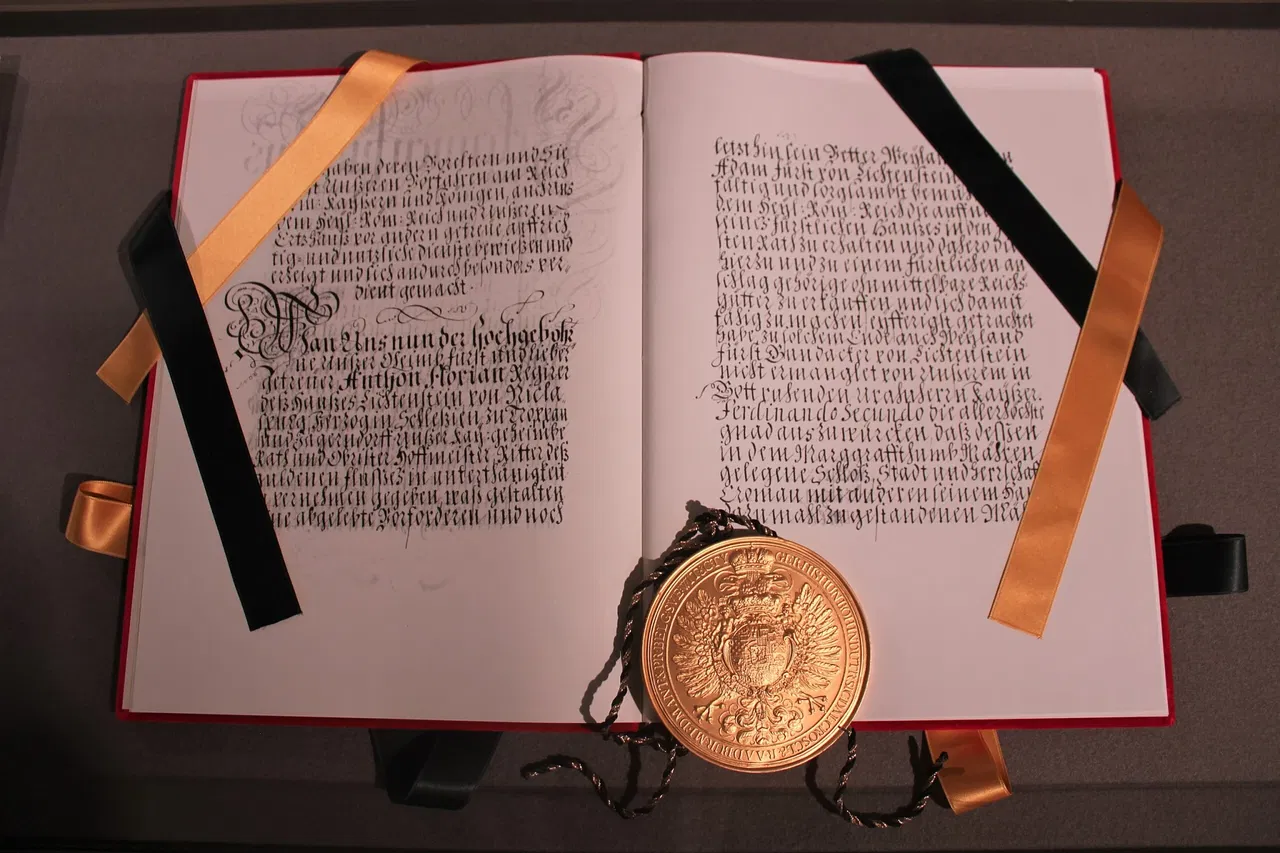 haben deren Voreltern und Sie
Unseren Vorfahren am Reich
Kaÿsern und Königen, auch uns
dem Heÿl: Röm: Reich und Unserem
Ertzhauß vor andern getreue auffrich
tig- und nutzliche dienste bewießen und
erzeigt und sich andurch besonders ver,
dient gemacht.
Wan Uns nun der Hochgebohr
ne Unser Oheimb fürst und lieber
getreuer Anthon Florian Regirer
deß Hauses Liechtenstein von Nicla,
spurg Herzog in Schlesien zu Troppau
und Jägerndorff Unßer Kaÿ: geheimbe
Rath und Obrister Hoffmeister Ritter deß
guldenen flußes in unterthänigkeit
vernehmen gegeben, waß gestalten
seine abgelebte Vorforderen und noch
letsthin sein Vetter Weÿland
Adam fürst von Liechtenstein
fältig und sorgsambst
dem Heÿl: Röm: Reich die
seines fürstlichen Haußes in
sten rath zu erhalten und
hierzu und zu einem fürstlichen an
schlag gehörige ohnmittelbare Reichs
gütter zu erkauffen, und sich damit
fähig zu machen, eÿfferigst getrachtet
habe, zu solchem Ende auch Weÿland
fürst Gundacker von Liechtenstein
nicht ermanglet von Unserem in
Gott ruhenden Uranherrn Kaÿser
Ferdinando Secundo die allerhöchste
gnad auszuwürcken, daß dessen
in dem Marggraffthumb Mähren
gelegene Schloß, Stadt und Herrschaft
Cromau mit anderen seinem
zumahl zugestandenen